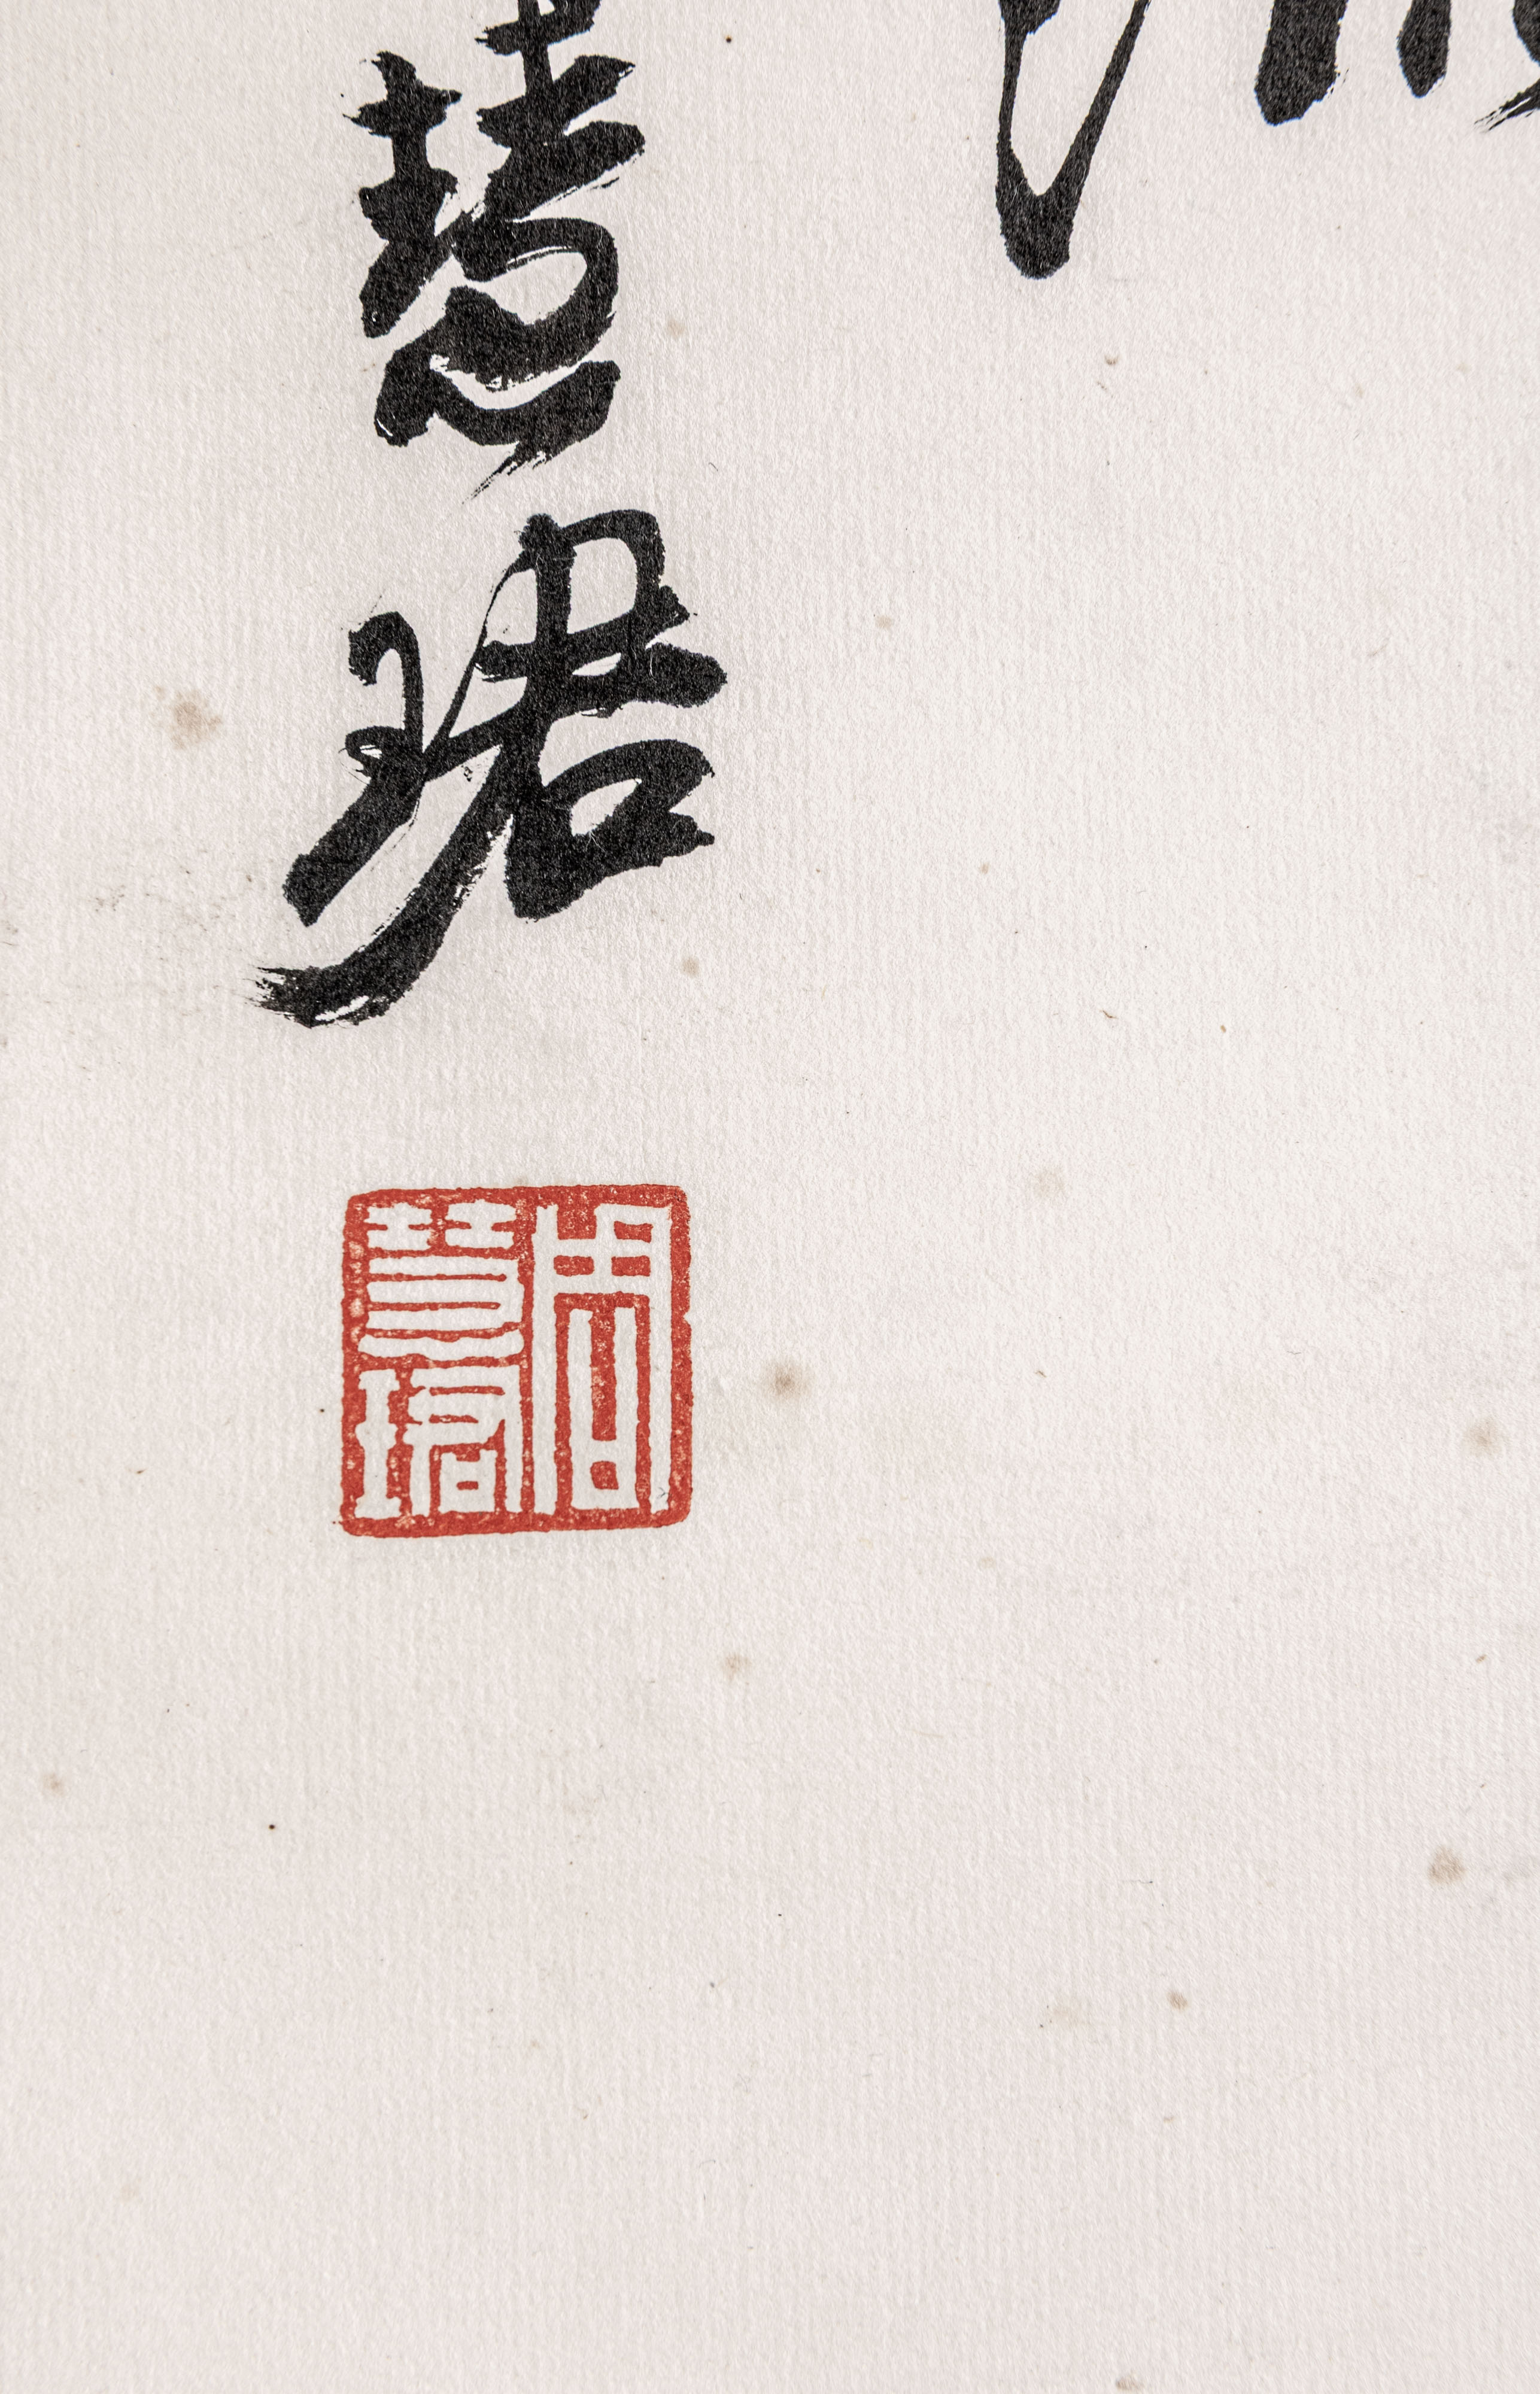 慧珺
周慧珺